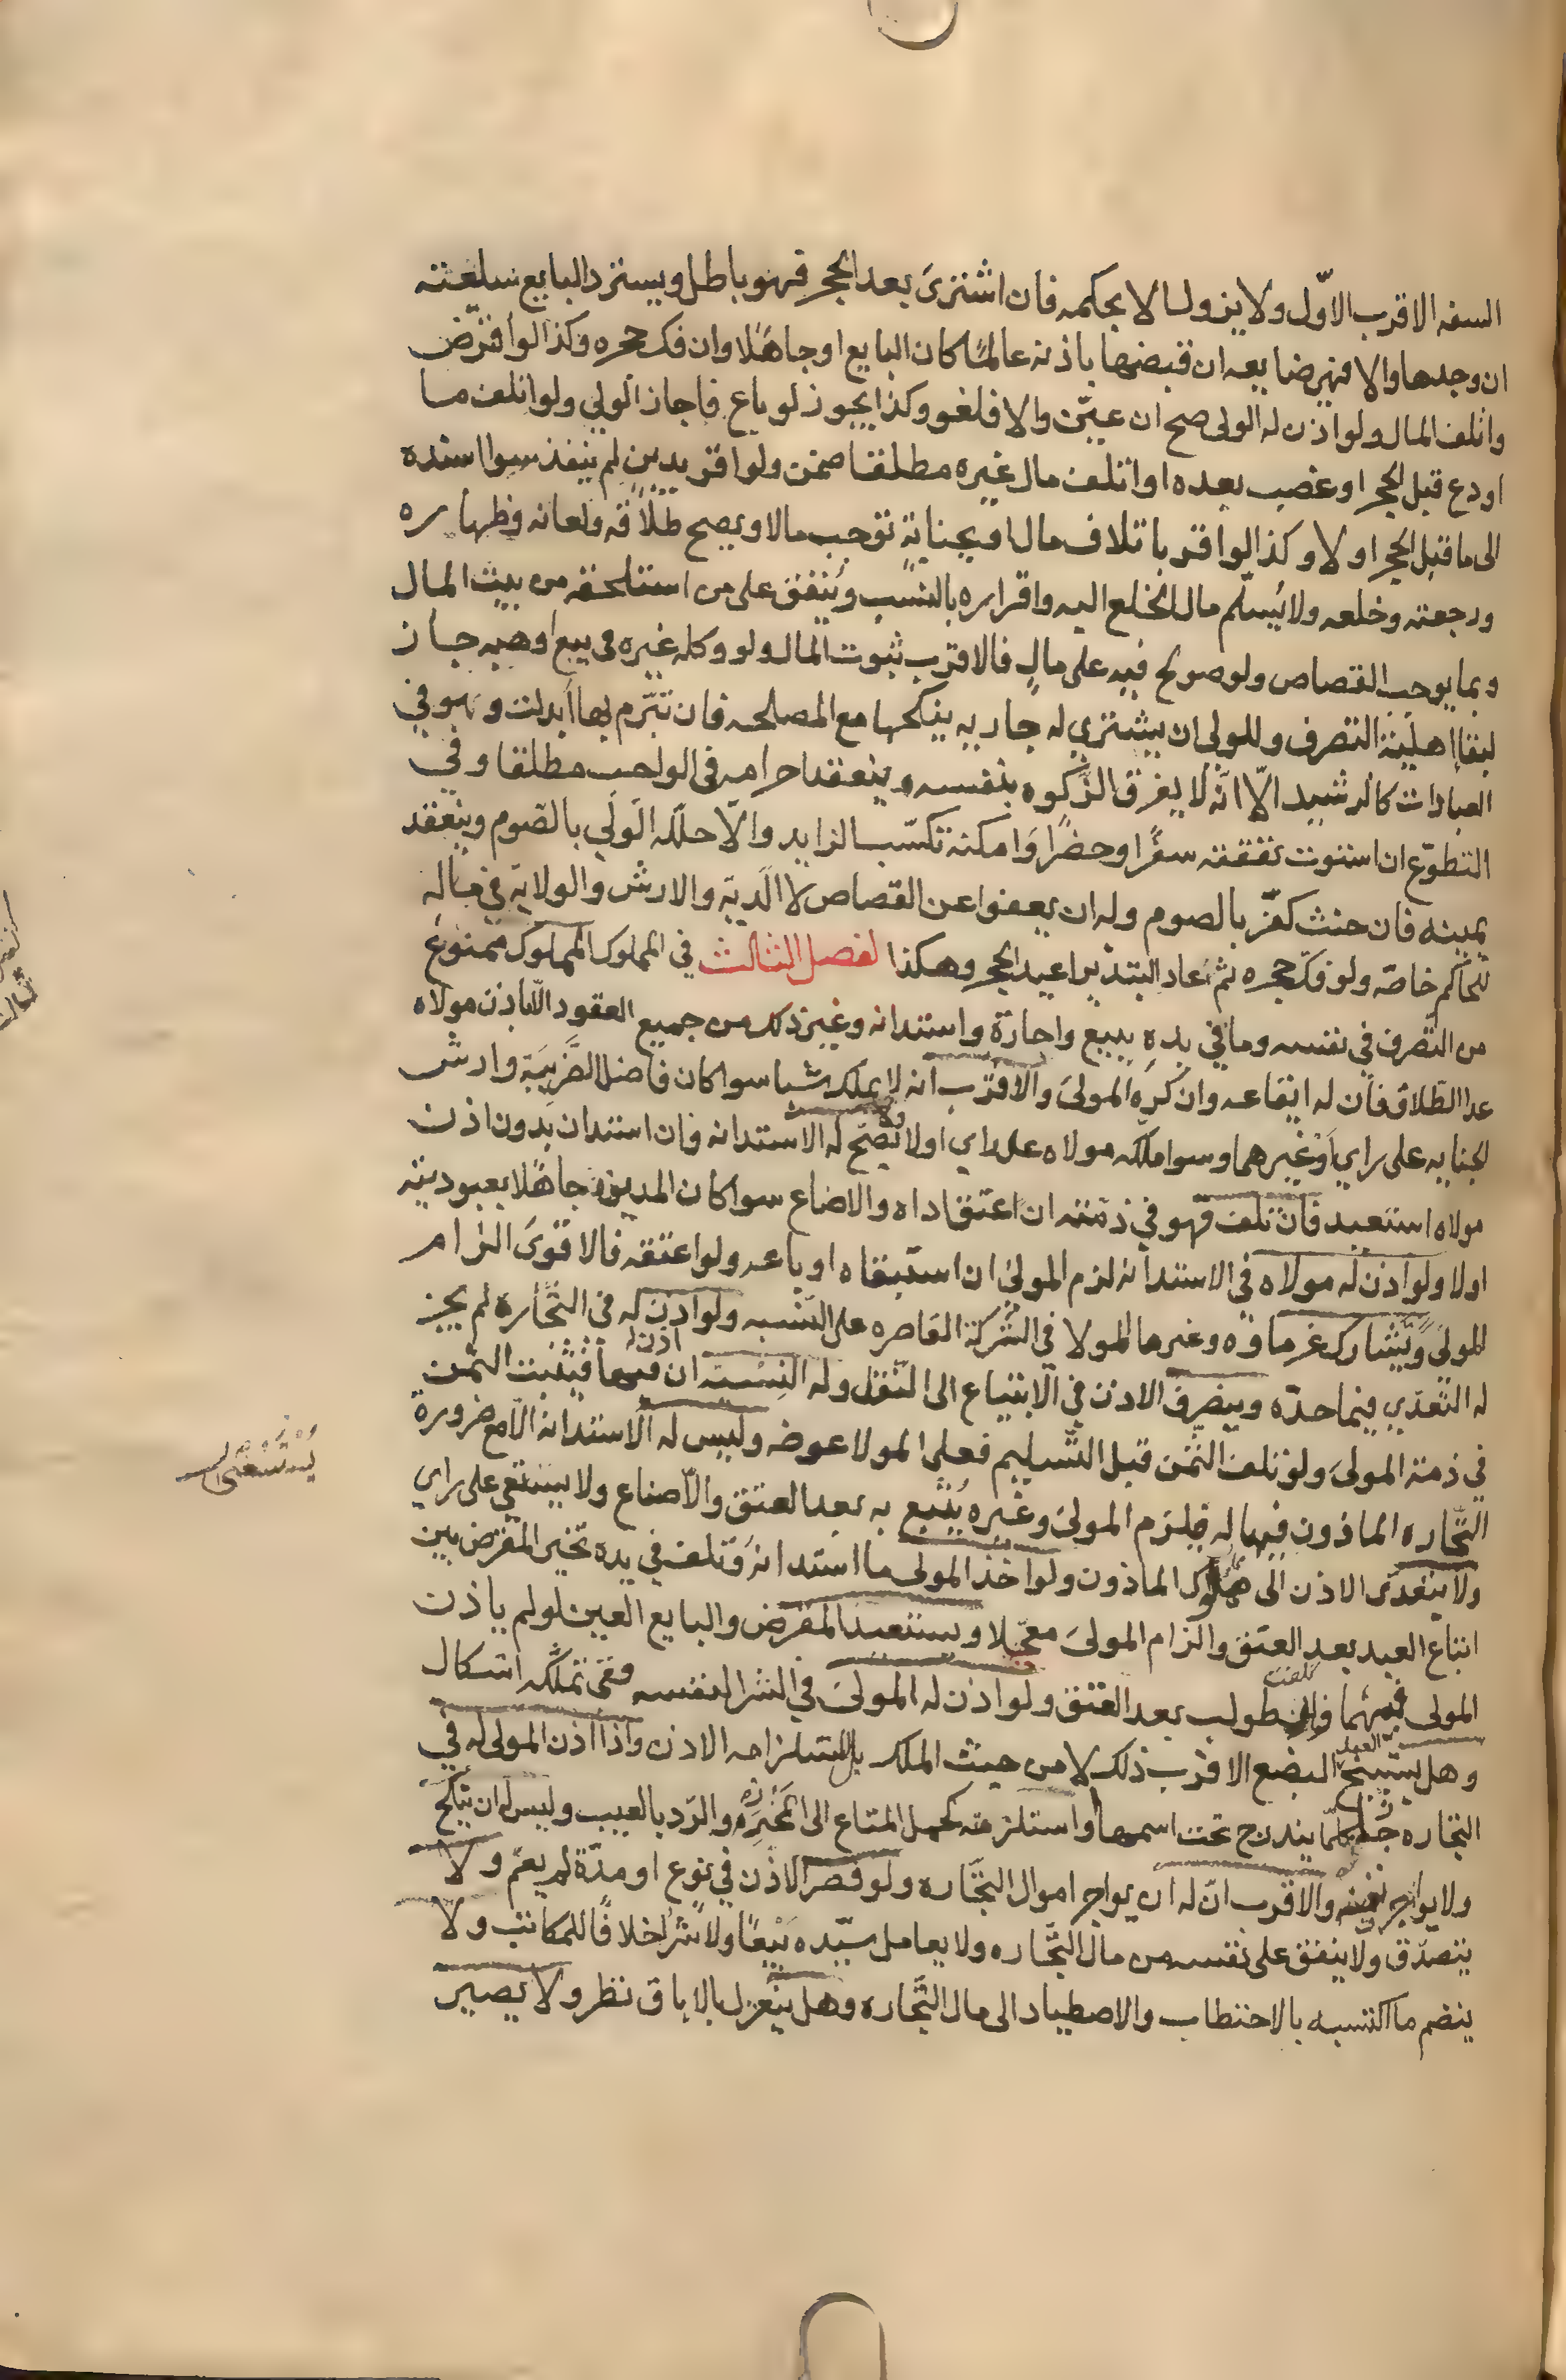 السفه الاقرب الاوّل ولا يزول الا بحكمه فان اشترىَ بعد الحجر فهو باطل ويسترد البايع سلعته
ان وجدها والا فهي ضايعه ان قبضها باذنه عالمًا كان البايع او جاهلًا وان فك حجره وكذا لو اقترض
واتلف المال ولو اذن له الولى صح ان عيّن والا فلغو وكذا يجوز لو باع فاجاز الولي ولو اتلف ما
اودع قبل الحجر او غصب بعده او اتلف مال غيره مطلقا ضمن ولو اقر بدين لم ينفذ سوا اسنده
الى ما قبل الحجر اولا وكذا لو اقر باتلاف مال او بجناية توجب مالا ويصح طلاقه ولعانه وظهاره
ورجعته وخلعه ولا يُسلّم مال الخلع اليه واقراره بالنسب ويُنفق على من استلحقه من بيت المال
وبما يوجب القصاص ولو صولح فيه على مالٍ فالاقرب ثبوت المال ولو وكله غيره في بيع او هبه جاز
لبقاا اهليّة التصرف وللولي ان يشتري له جاريه ينكحها مع المصلحه فان تبرّم بها اُبدلت وهو في
العبادات كالرشيد الّا انّه لا يفرق الزكوه بنفسه وينعقد احرامه في الواجب مطلقا وفي
التطوّع ان استوت نفقته سفرًا وحضرًا وامكنه تكسّب الزايد والّا حلّله الوَلي بالصّوم وينعقد
يمينه فان حنث كفّر بالصوم وله ان يعفوا عن القصاص لا الديّة والارش والولاية في ماله
للحاكم خاصّه ولو فكّ حجره ثم عاد التبذير اعيد الحجر وهكذا لفصل الثالث في المملوك المملوك ممنوع
من التّصرف في نفسه وما في يدهِ ببيع واجارة واستدانه وغير ذلك من جميع العقود الّا باذن مولاه
عدا الطّلاق فان له ايقاعه وان كرِه المولىَ والاقرب انه لا يملك شيا سوا كان فاضل الضّريبة وارش
لجنايه على راي أو غيرهما وسوا ملّكه مولاه على راي اولا ولا تصحّ له الاستدانه فان استدان بدون اذن
مولاه استعيد فان تلف فهو في ذمّته ان اعتق اداه والا ضاع سوا كان المدين جاهلًا بعبوديته
اولا ولو اذن له مولاه في الاستدانه لزم المولىَ ان استبقاه او باعه ولو اعتقه فالاقوىَ الزام
المولىَ ويُتشارك غرماوه وغرما المولا في التّركة القاصره على النّسبه ولو اذن له في التّجاره لم يجز
له التّعدّي فيما حدّه وينصرف الاذن في الابتياع الى النّقد وله النسيئه ان اذن له فيها فيثبت الثّمن
في ذمة المولىَ ولو تلف الثمن قبل التّسليم فعلى المولا عوضه وليس له الاستدانه الّا مع ضرورة
يُسْتَسْعىَ
التّجاره الماذون فيها له فيلزم المولىَ وغيره يُتبع به بعد العتق والّا ضاع ولا يستسعي على راي
ولا يتعدّى الاذن الى مملوك الماذون ولو اخذ المولى ما استدانهُ وتلف في يده تخيّر المقرض بين
اتباع العبد بعد العتق والزام المولىَ معجّلا ويستعيد المقرض والبايع العين لو لم ياذن
المولى فيهما فان تلفت طولب بعد العتق ولو اذن له المولىَ في الشرا لنفسه ففي تملكه اشكال
وهل يستبيح العبد البضع الاقرب ذلك لا من حيث الملك بل لاستلزامه الاذن واذا اذن المولى له في
التجاره جُاز كلّما يندرج تحت اسمها او استلزمته كحمل المتاع الى المَخْزن والرّد بالعيب وليس له ان ينكح
ولا يواجر نفسه والاقرب انّ له ان يواجر اموال التجّاره ولو قصر الاذن في نوع او مدّة لم يعمّ ولا
يتصدّق ولا ينفق على نفسه من مال التجّاره ولا يعامل سيّده بَيْعًا ولا شرًا خلافًا للمكاتب ولا
ينضم ما اكتسبه بالاحتطاب والاصطياد الى مال التجّاره وهل ينعزل بالاباق نظر ولا يصير